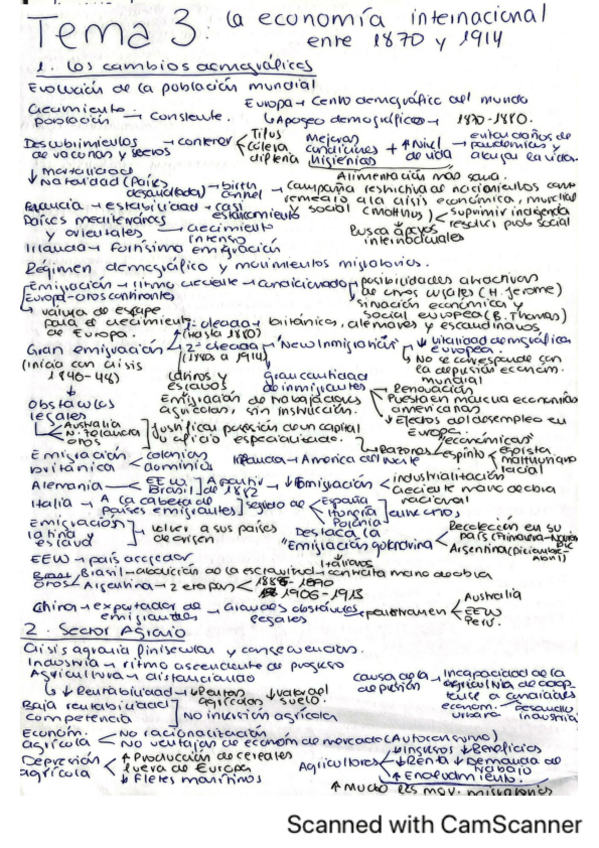 Tema 3: La economía internacional
entre 1870 y 1914
1. Los cambios demográficos
Evolución de la población mundial
Crecimiento población → Constante. Europa → Centro demográfico del mundo
↳ Apogeo demográfico → 1870-1880.
Descubrimientos de vacunas y sueros → contener < Tifus Cólera difteria
Mejoras condiciones higienicas + ↑ Nivel de vida → evitar daños de pandemias y alargar la vida.
Alimentación más sana.
↓ Mortalidad
↓ Natalidad (Países desarrollados) → birth control → Campaña restrictiva de nacimientos como remedio a la crisis económica,
social (Malthus) < Suprimir indigencia resolver prob social
Francia → estabilidad → casi estancamiento
Países mediterráneos y orientales → crecimiento intenso
Busca apoyos intelectuales
Irlanda → Fortísima emigración
Régimen demográfico y movimientos migratorios.
Emigración → ritmo creciente → condicionado
Europa-otros continentes
posibilidades atractivas de otros lugares (H. Jerome)
situación económica y social europea (B. Thomas)
↳ válvula de escape para el crecimiento de Europa.
1ª oleada → británicos, alemanes y escandinavos
(Hasta 1880)
Gran emigración < 2ª oleada → "New Inmigration"
(1880 a 1914)
(Inicia con crisis 1846-48)
↓ Vitalidad demográfica europea.
No se corresponde con la depresión económ. mundial
latinos y eslavos
Gran cantidad de inmigrantes
Emigración de trabajadores agrícolas, sin instrucción.
Renovación
Puesta en marcha economías americanas
↓ Efectos del desempleo en Europa.
Obstáculos legales
Australia
N. Zelanda
otros
Justificar posesión de un capital
u oficio especializado.
Razones
"económicas"
Emigración británica < colonias dominios
Irlanda → America del Norte
Alemania < EEUU Brasil ] A partir de 1882 → ↓ Emigración < industrialización
Creciente mano de obra nacional
Italia → A la cabeza de países emigrantes ] seguido de < España Hungría Polonia
Emigración latina y eslava ] → volver a sus países de origen
Destaca la "Emigración golondrina"
↳ Italianos
Recolección en su país
Argentina (Diciembre-Abril)
EEUU → país acogedor
Otros < Brasil → abolición de la esclavitud → contrata mano de obra
Argentina → 2 etapas <
1906-1913
China → exportador de emigrantes → Grandes obstáculos legales
Australia
EEUU
Perú.
2. Sector Agrario
Crisis agraria finisecular y consecuencias.
Industria → ritmo ascendente de progreso
Agricultura → distanciando
↳ ↓ Rentabilidad → ↓ Rentas agrícolas ↓ valor del suelo.
Causa de la depresión → Incapacidad de la agricultura de adaptarse a cambios
económ. < desarrollo
urbano industria
Baja rentabilidad
competencia ] No inversión agrícola
Económ. agrícola < No racionalización
No ventajas de económ de mercado (Autoconsumo)
Depresión agrícola < ↑ Producción de cereales fuera de Europa
↓ Fletes marítimos
Agricultores < ↓ Ingresos ↓ Beneficios
↓ Renta ↓ Demanda de trabajo
↑ Endeudamiento.
↑ Mucho los mov. migratorios
Scanned with CamScanner